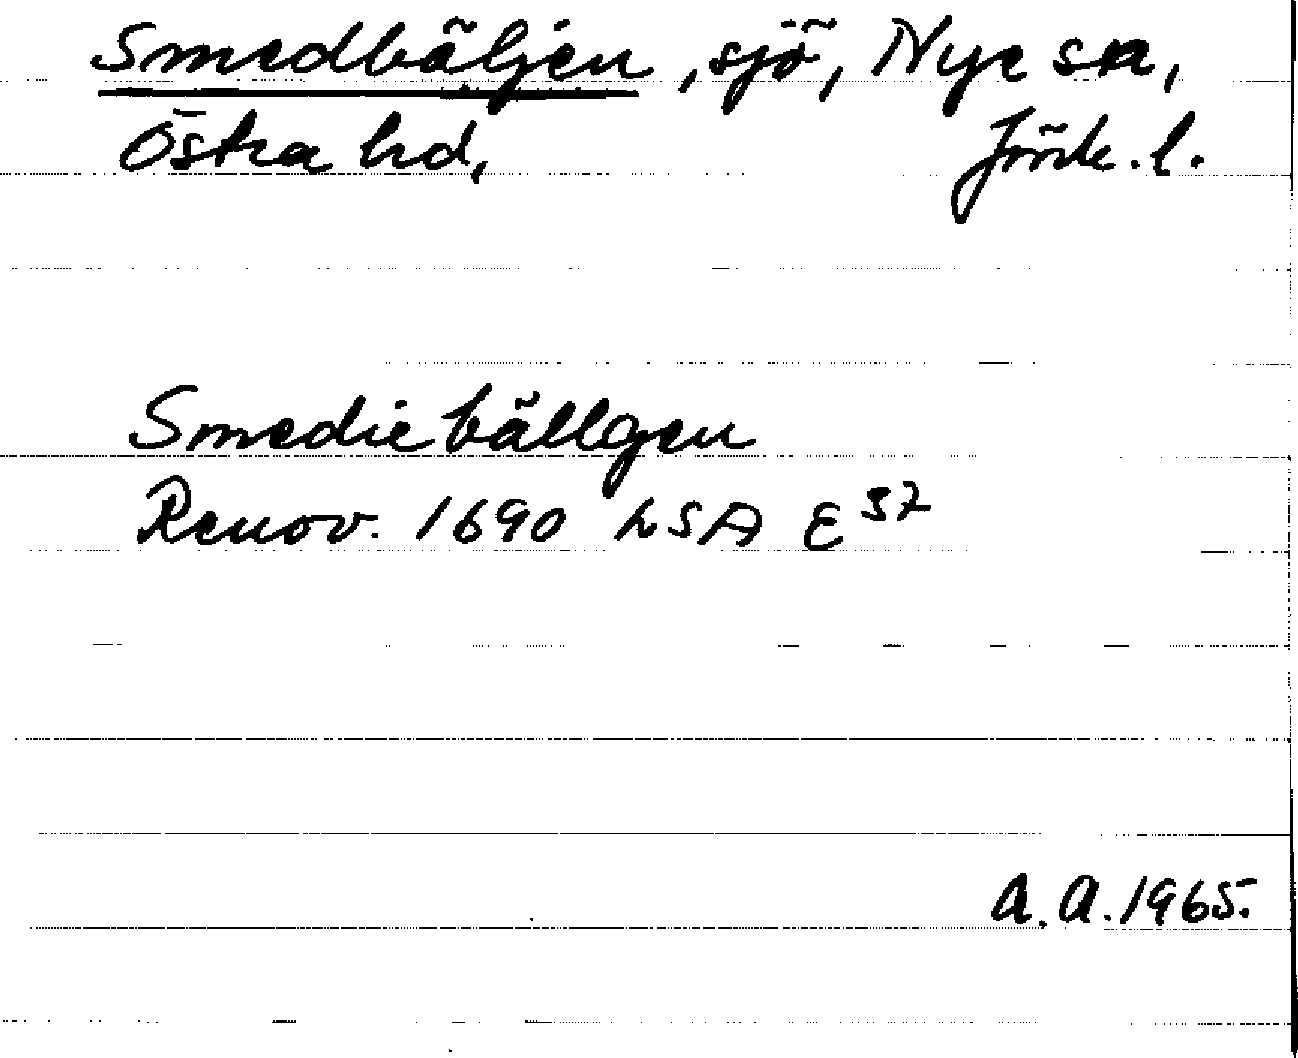 Smedbäljen, sjö, Nye sn,
Östra hd, Jönk. l.
Smediebällgen
Renov. 1690 LSA E³⁷
A.A. 1965.